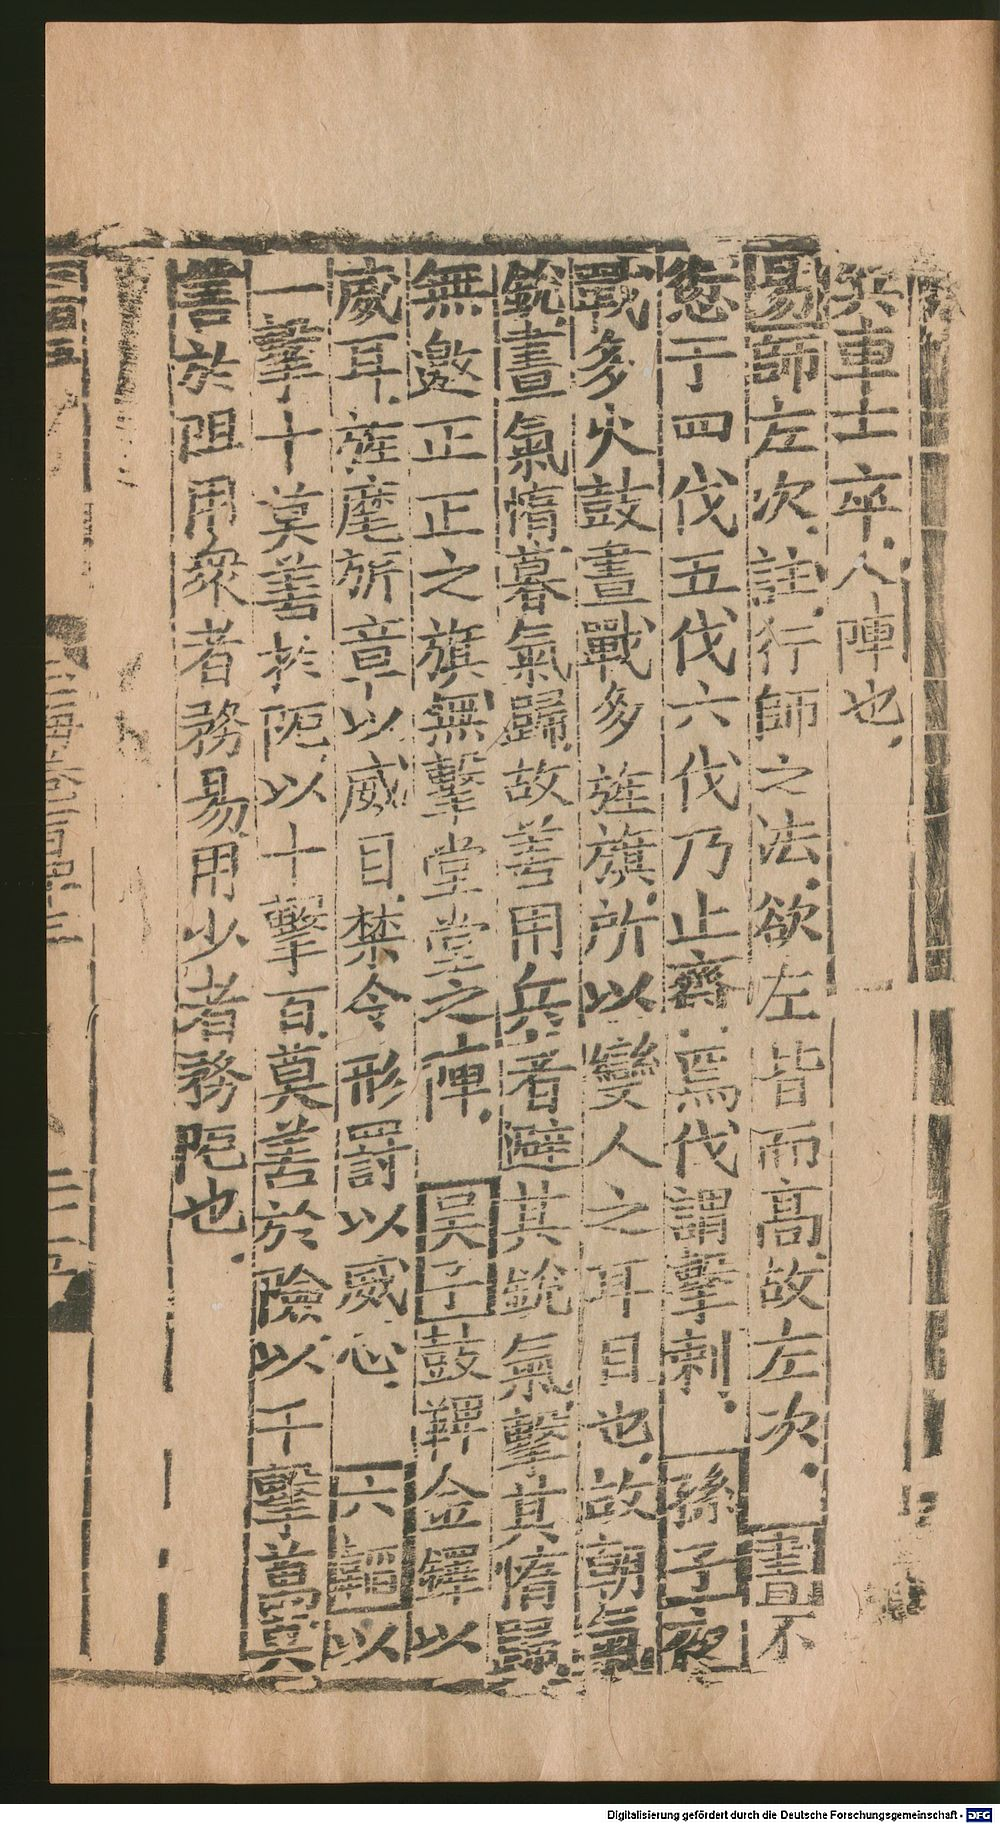 兵車士卒入陣也
易師左次註行師之法欲左皆而高故左次 書不
愆于四伐五伐六伐乃止齊焉伐謂擊刺 孫子夜
戰多火鼓晝戰多旌旗所以變人之耳目也故朝氣
銳晝氣惰暮氣歸故善用兵者避其銳氣擊其惰歸
無邀正正之旗無擊堂堂之陣 吴子鼓鞞金鐸以
威耳旌麾旂章以威目禁令形罰以威心 六韜以
一擊十莫善於阨以十擊百莫善於險以千擊萬莫
善於阻用衆者務易用少者務阨也
Digitalisierung gefördert durch die Deutsche Forschungsgemeinschaft - DFG